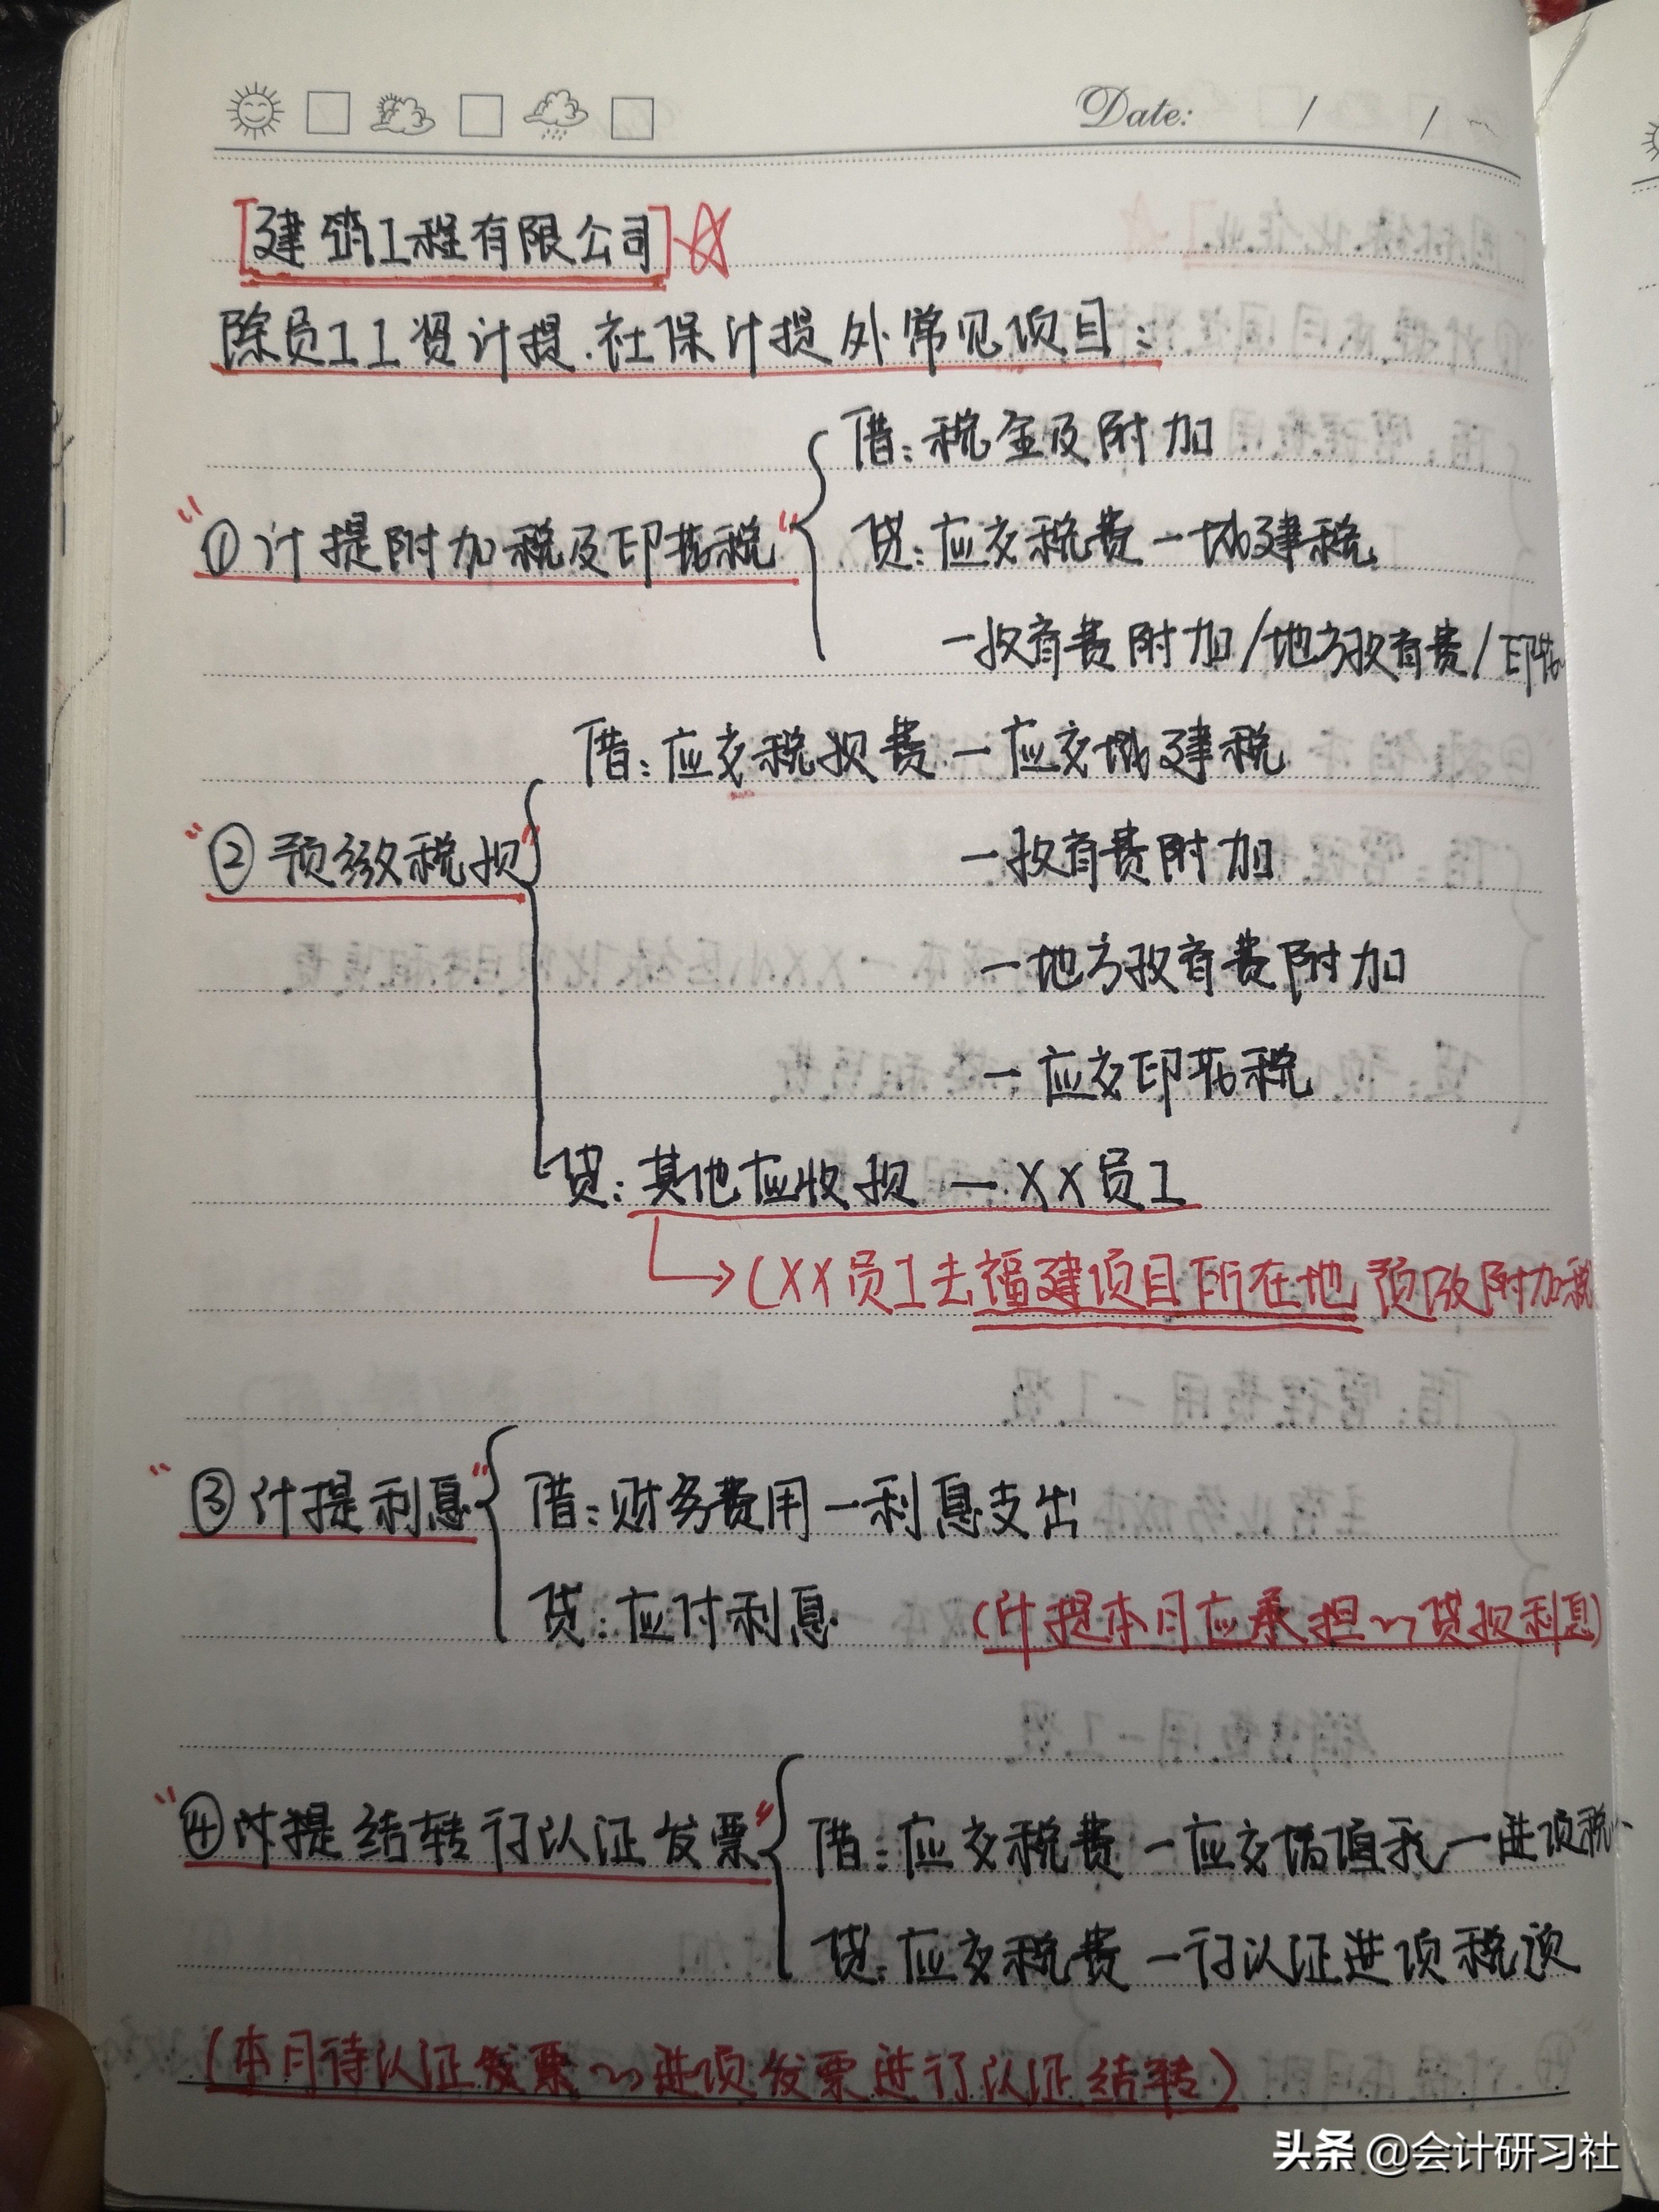 Date: / /
[建筑工程有限公司]☆
除员工工资计提、社保计提外常见项目:
借:税金及附加
"①计提附加税及印花税"
贷:应交税费—城建税
—教育费附加/地方教育费/印花
借:应交税损费—应交城建税
"②预缴税损"
—教育费附加
—地方教育费附加
—应交印花税
贷:其他应收损—XX员工
→(XX员工去福建项目所在地预缴附加税
"③计提利息"
借:财务费用—利息支出
贷:应付利息 (计提本月应承担~贷损利息)
"④计提结转行认证发票"
借:应交税费—应交增值税—进项税
贷:应交税费—行认证进项税额
(本月待认证发票~进项发票进行认证结转)
头条 @会计研习社